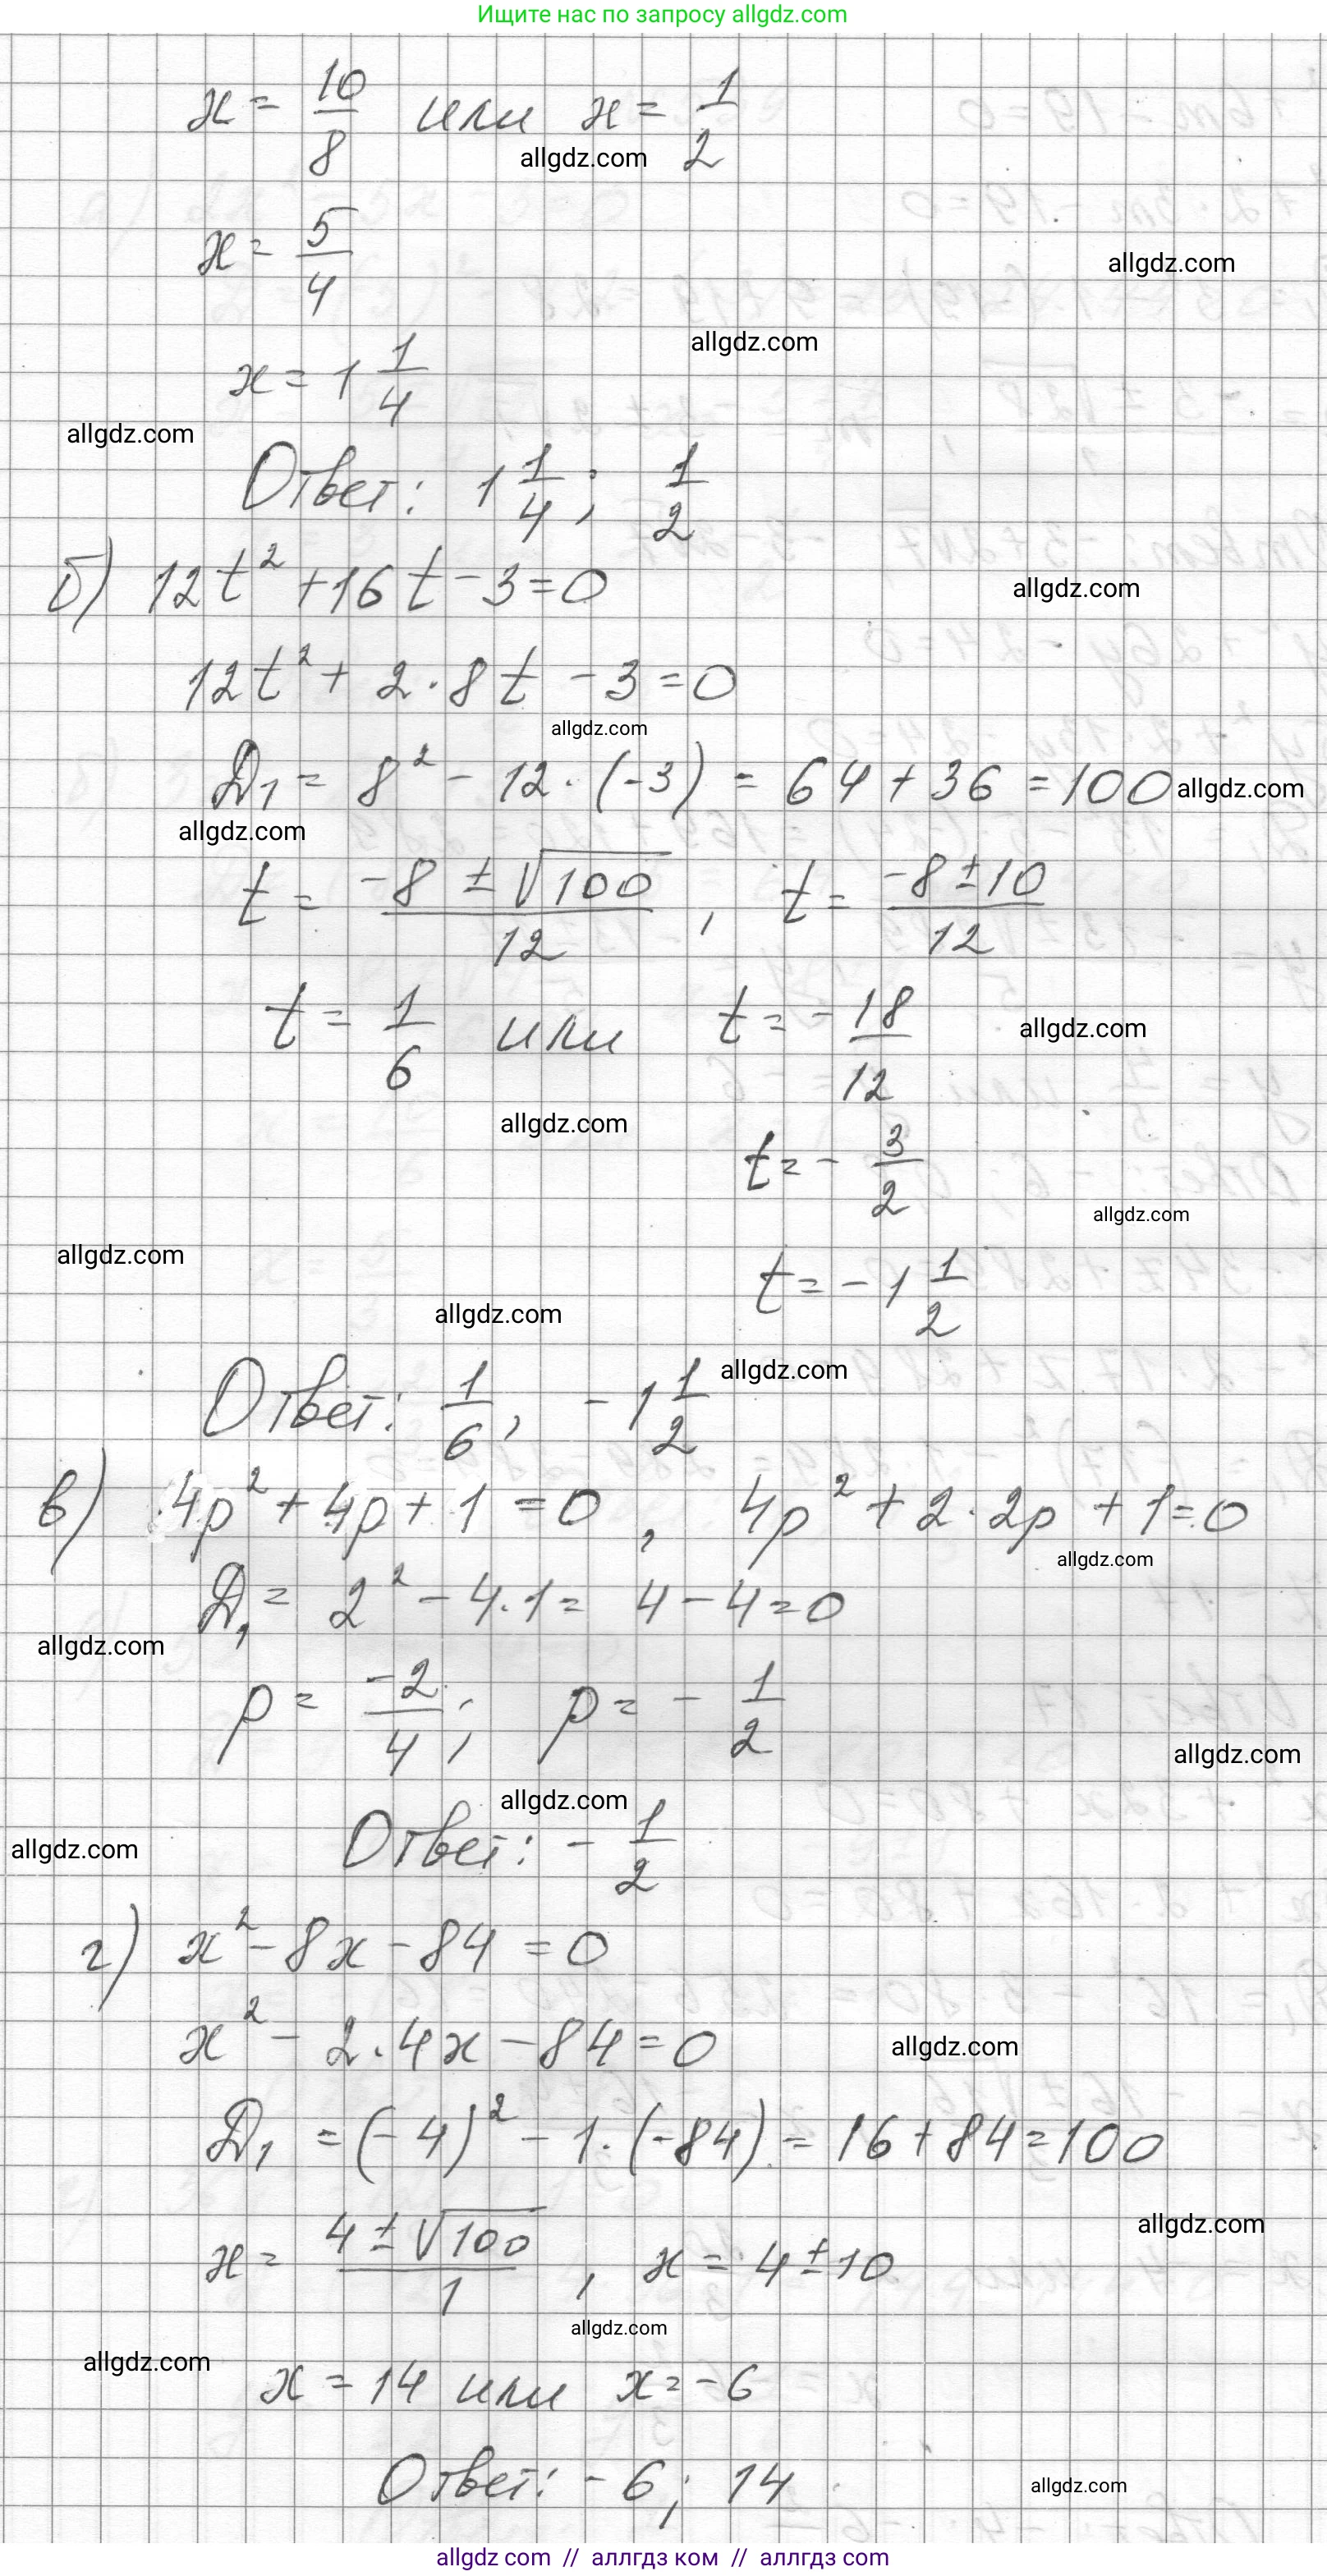 Ищите нас по запросу allgdz.com
x = 10/8 или x = 1/2
allgdz.com
x = 5/4
allgdz.com
allgdz.com
x = 1 1/4
allgdz.com
Ответ: 1 1/4; 1/2
б) 12t² + 16t - 3 = 0
allgdz.com
12t² + 2·8t - 3 = 0
allgdz.com
Д₁ = 8² - 12·(-3) = 64 + 36 = 100
allgdz.com
allgdz.com
t = (-8 ± √100)/12, t = (-8 ± 10)/12
t = 1/6 или t = -18/12
allgdz.com
allgdz.com
t = -3/2
allgdz.com
allgdz.com
t = -1 1/2
allgdz.com
allgdz.com
Ответ: 1/6, -1 1/2
в) 4p² + 4p + 1 = 0, 4p² + 2·2p + 1 = 0
allgdz.com
Д₁ = 2² - 4·1 = 4 - 4 = 0
allgdz.com
p = -2/4; p = -1/2
allgdz.com
allgdz.com
Ответ: -1/2
allgdz.com
г) x² - 8x - 84 = 0
x² - 2·4x - 84 = 0
allgdz.com
Д₁ = (-4)² - 1·(-84) = 16 + 84 = 100
allgdz.com
x = (4 ± √100)/1, x = 4 ± 10
allgdz.com
allgdz.com
x = 14 или x = -6
Ответ: -6; 14
allgdz.com
allgdz com // аллгдз ком // аллгдз com